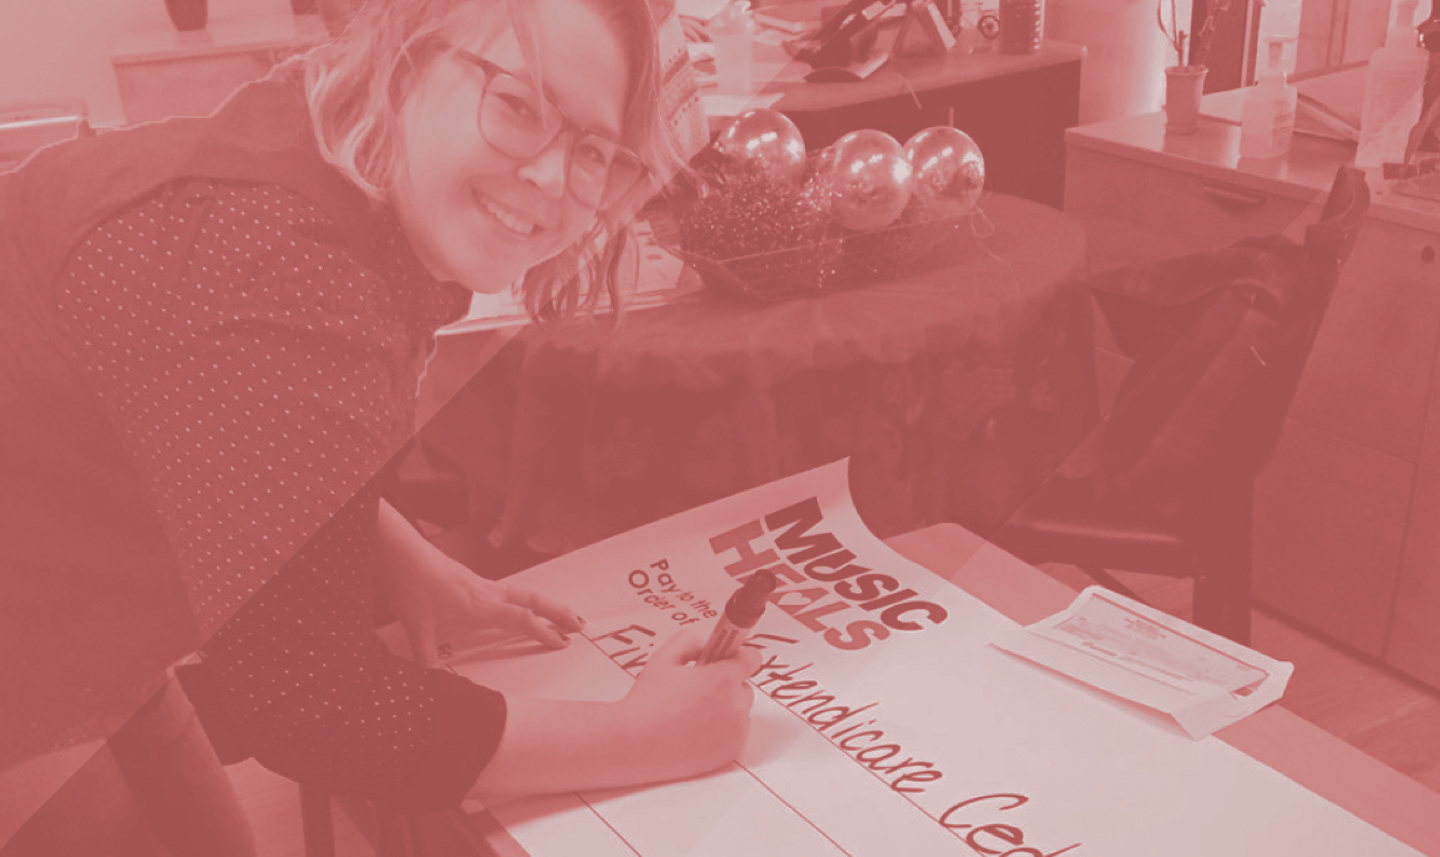 MUSIC
HEALS
Pay to the
Order of
Extendicare